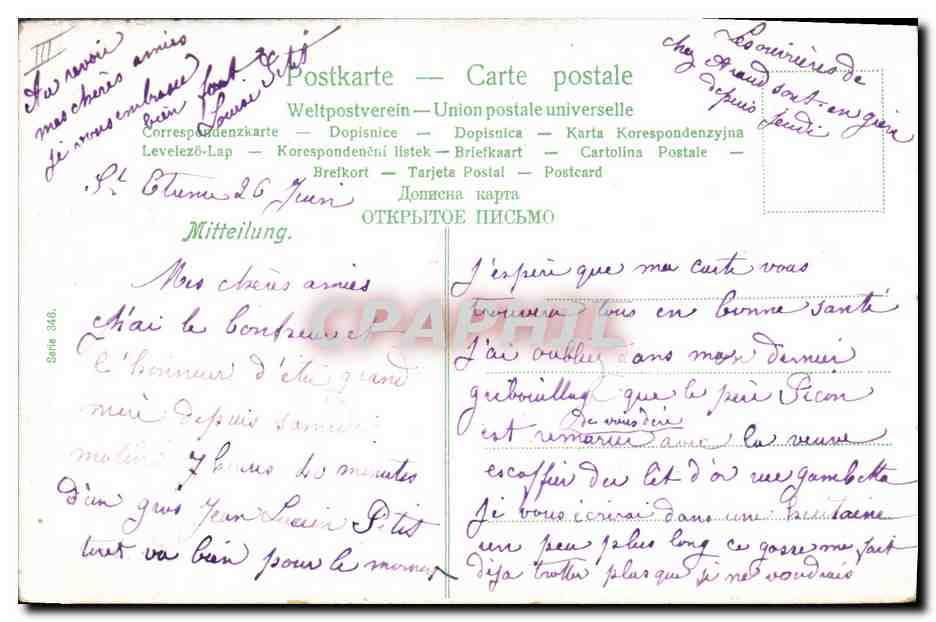 III
Au revoir
mes chères amies
je vous embrasse
bien fort
Louise Petit
Les ouvrières de
chez Giraud sont en grève
depuis jeudi
Postkarte — Carte postale
Weltpostverein — Union postale universelle
Correspondenzkarte — Dopisnice — Dopisnica — Karta Korespondenzyjna
Levelező-Lap — Korespondenční listek — Briefkaart — Cartolina Postale —
Brefkort — Tarjeta Postal — Postcard
Дописна карта
ОТКРЫТОЕ ПИСЬМО
St Etienne 26 Juin
Mitteilung.
Mes chères amies
j'ai le bonheur et
l'honneur d'être grand
mère depuis samedi
matin 7 heures 40 minutes
d'un gros Jean Lucien Petit
tout va bien pour le moment
J'espère que ma carte vous
trouvera tous en bonne santé
J'ai oublié dans mon dernier
gribouillage que le père Picon
de vous dire
est remarié avec la veuve
escoffier du lit d'or rue gambetta
Je vous écrirai dans une huitaine
un peu plus long ce gosse me fait
déja trotter plus que je ne voudrais
Serie 348.
CPAPHIL